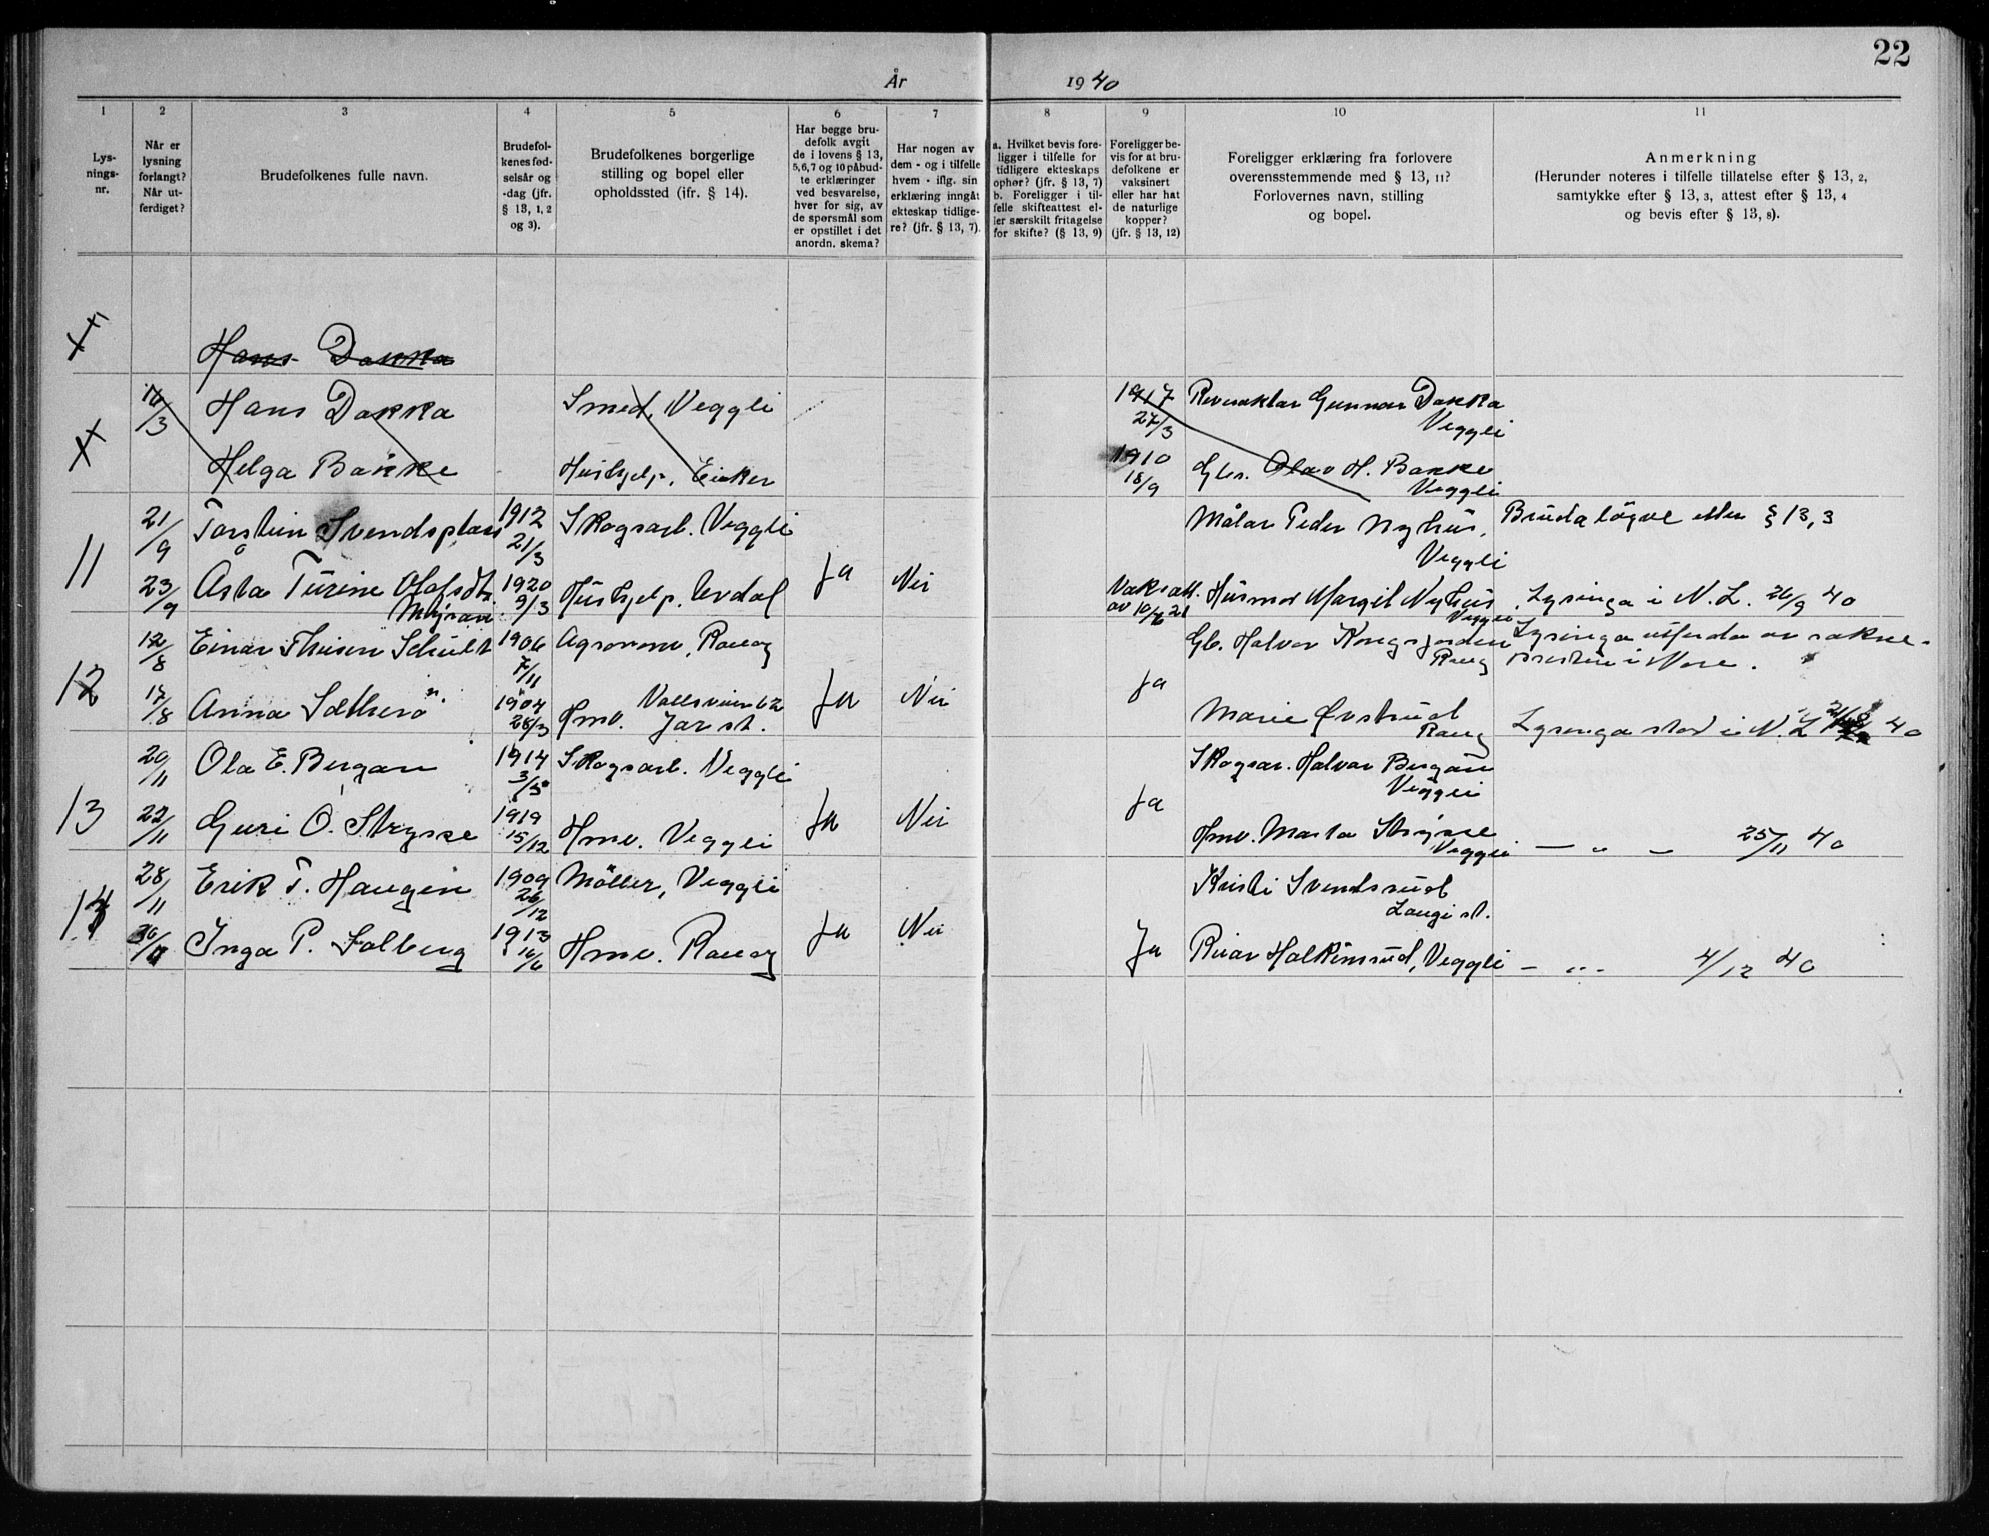 22
År 1940
1 2 3 4 5 6 7 8 9 10 11
Lys-
nings-
nr.
Når er
lysning
forlangt?
Når ut-
ferdiget?
Brudefolkenes fulle navn.
Brudefol-
kenes fød-
selsår og
-dag (jfr.
§ 13, 1, 2
og 3).
Brudefolkenes borgerlige
stilling og bopel eller
opholdssted (ifr. § 14).
Har begge bru-
defolk avgit
de i lovens § 13,
5,6,7 og 10 påbud-
te erklæringer
ved besvarelse,
hver for sig, av
de spørsmål som
er opstillet i det
anordn. skema?
Har nogen av
dem - og i tilfelle
hvem - iflg. sin
erklæring inngåt
ekteskap tidlige-
re? (jfr. § 13, 7).
a. Hvilket bevis fore-
ligger i tilfelle for
tidligere ekteskaps
ophør? (jfr. § 13, 7)
b. Foreligger i til-
felle skifteattest el-
ler særskilt fritagelse
for skifte? (§ 13, 9)
Foreligger be-
vis for at bru-
defolkene er
vaksinert
eller har hat
de naturlige
kopper?
(jfr. § 13, 12)
Foreligger erklæring fra forlovere
overensstemmende med § 13, 11?
Forlovernes navn, stilling
og bopel.
Anmerkning
(Herunder noteres i tilfelle tillatelse efter § 13, 2,
samtykke efter § 13, 3, attest efter § 13, 4
og bevis efter § 13, 8).
Hans Dakka
Hans Dakka Smed, Veggli 1917 27/3 Gunnar Dakka
Veggli
Helga Bakke Hushjelp, Eiker 1910 18/9 Gbr. Olav H. Bakke
Veggli
11 21/9 Torstein Svendsplass 1912 21/3 Skogsarb. Veggli Målar Peder Nyhus, Bruda løyve etter § 13, 3
Veggli
23/9 Åsta Turine Olafsdtr. 1920 9/3 Hushjelp. Uvdal Ja Nei Vaksatt. Husmor Margit Nyhus Lysinga i N. L. 26/9 40
Myran av 10/6 21 Veggli
12 12/8 Einar Thisen Schult 1906 7/11 Agronom, Rauag Gb. Halvor Kongsjorden Lysinga utferda av sokne-
Raug presten i Nore.
17/8 Anna Sætherø 1904 28/3 Hmv. Vollsveien 62 Ja Nei Ja Marie Øvstrud Lysinga stod i N. L. 40
Jar st. Raug
13 20/11 Ola E. Bergan 1914 3/5 Skogsarb. Veggli Skogsar. Halvor Bergan
Veggli
22/11 Guri O. Strysse 1919 15/12 Hmv. Veggli Ja Nei Ja Hmv. Marta Strysse — „ — 25/11 40
Veggli
14 28/11 Erik T. Haugen 1909 26/12 Møller, Veggli Kristi Svendsrud
30/11 Inga P. Solberg 1913 16/6 Hmv. Rauag Ja Nei Ja Reiar Halkinsrud, Veggli — „ - 4/12 40